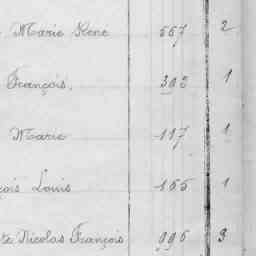 Marie René 557 2
François, 393 1
Marie 117 1
çois Louis 165 1
te Nicolas François 996 3